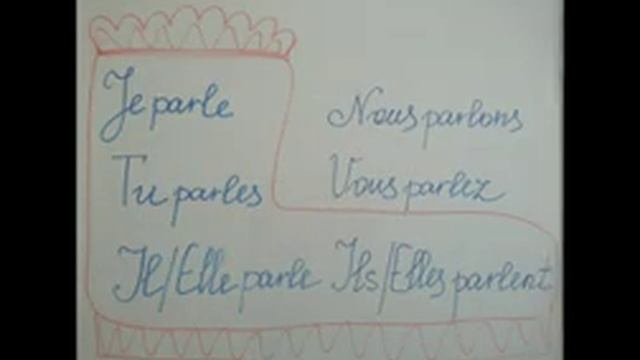 Je parle Nous parlons
Tu parles Vous parlez
Il/Elle parle Ils/Elles parlent